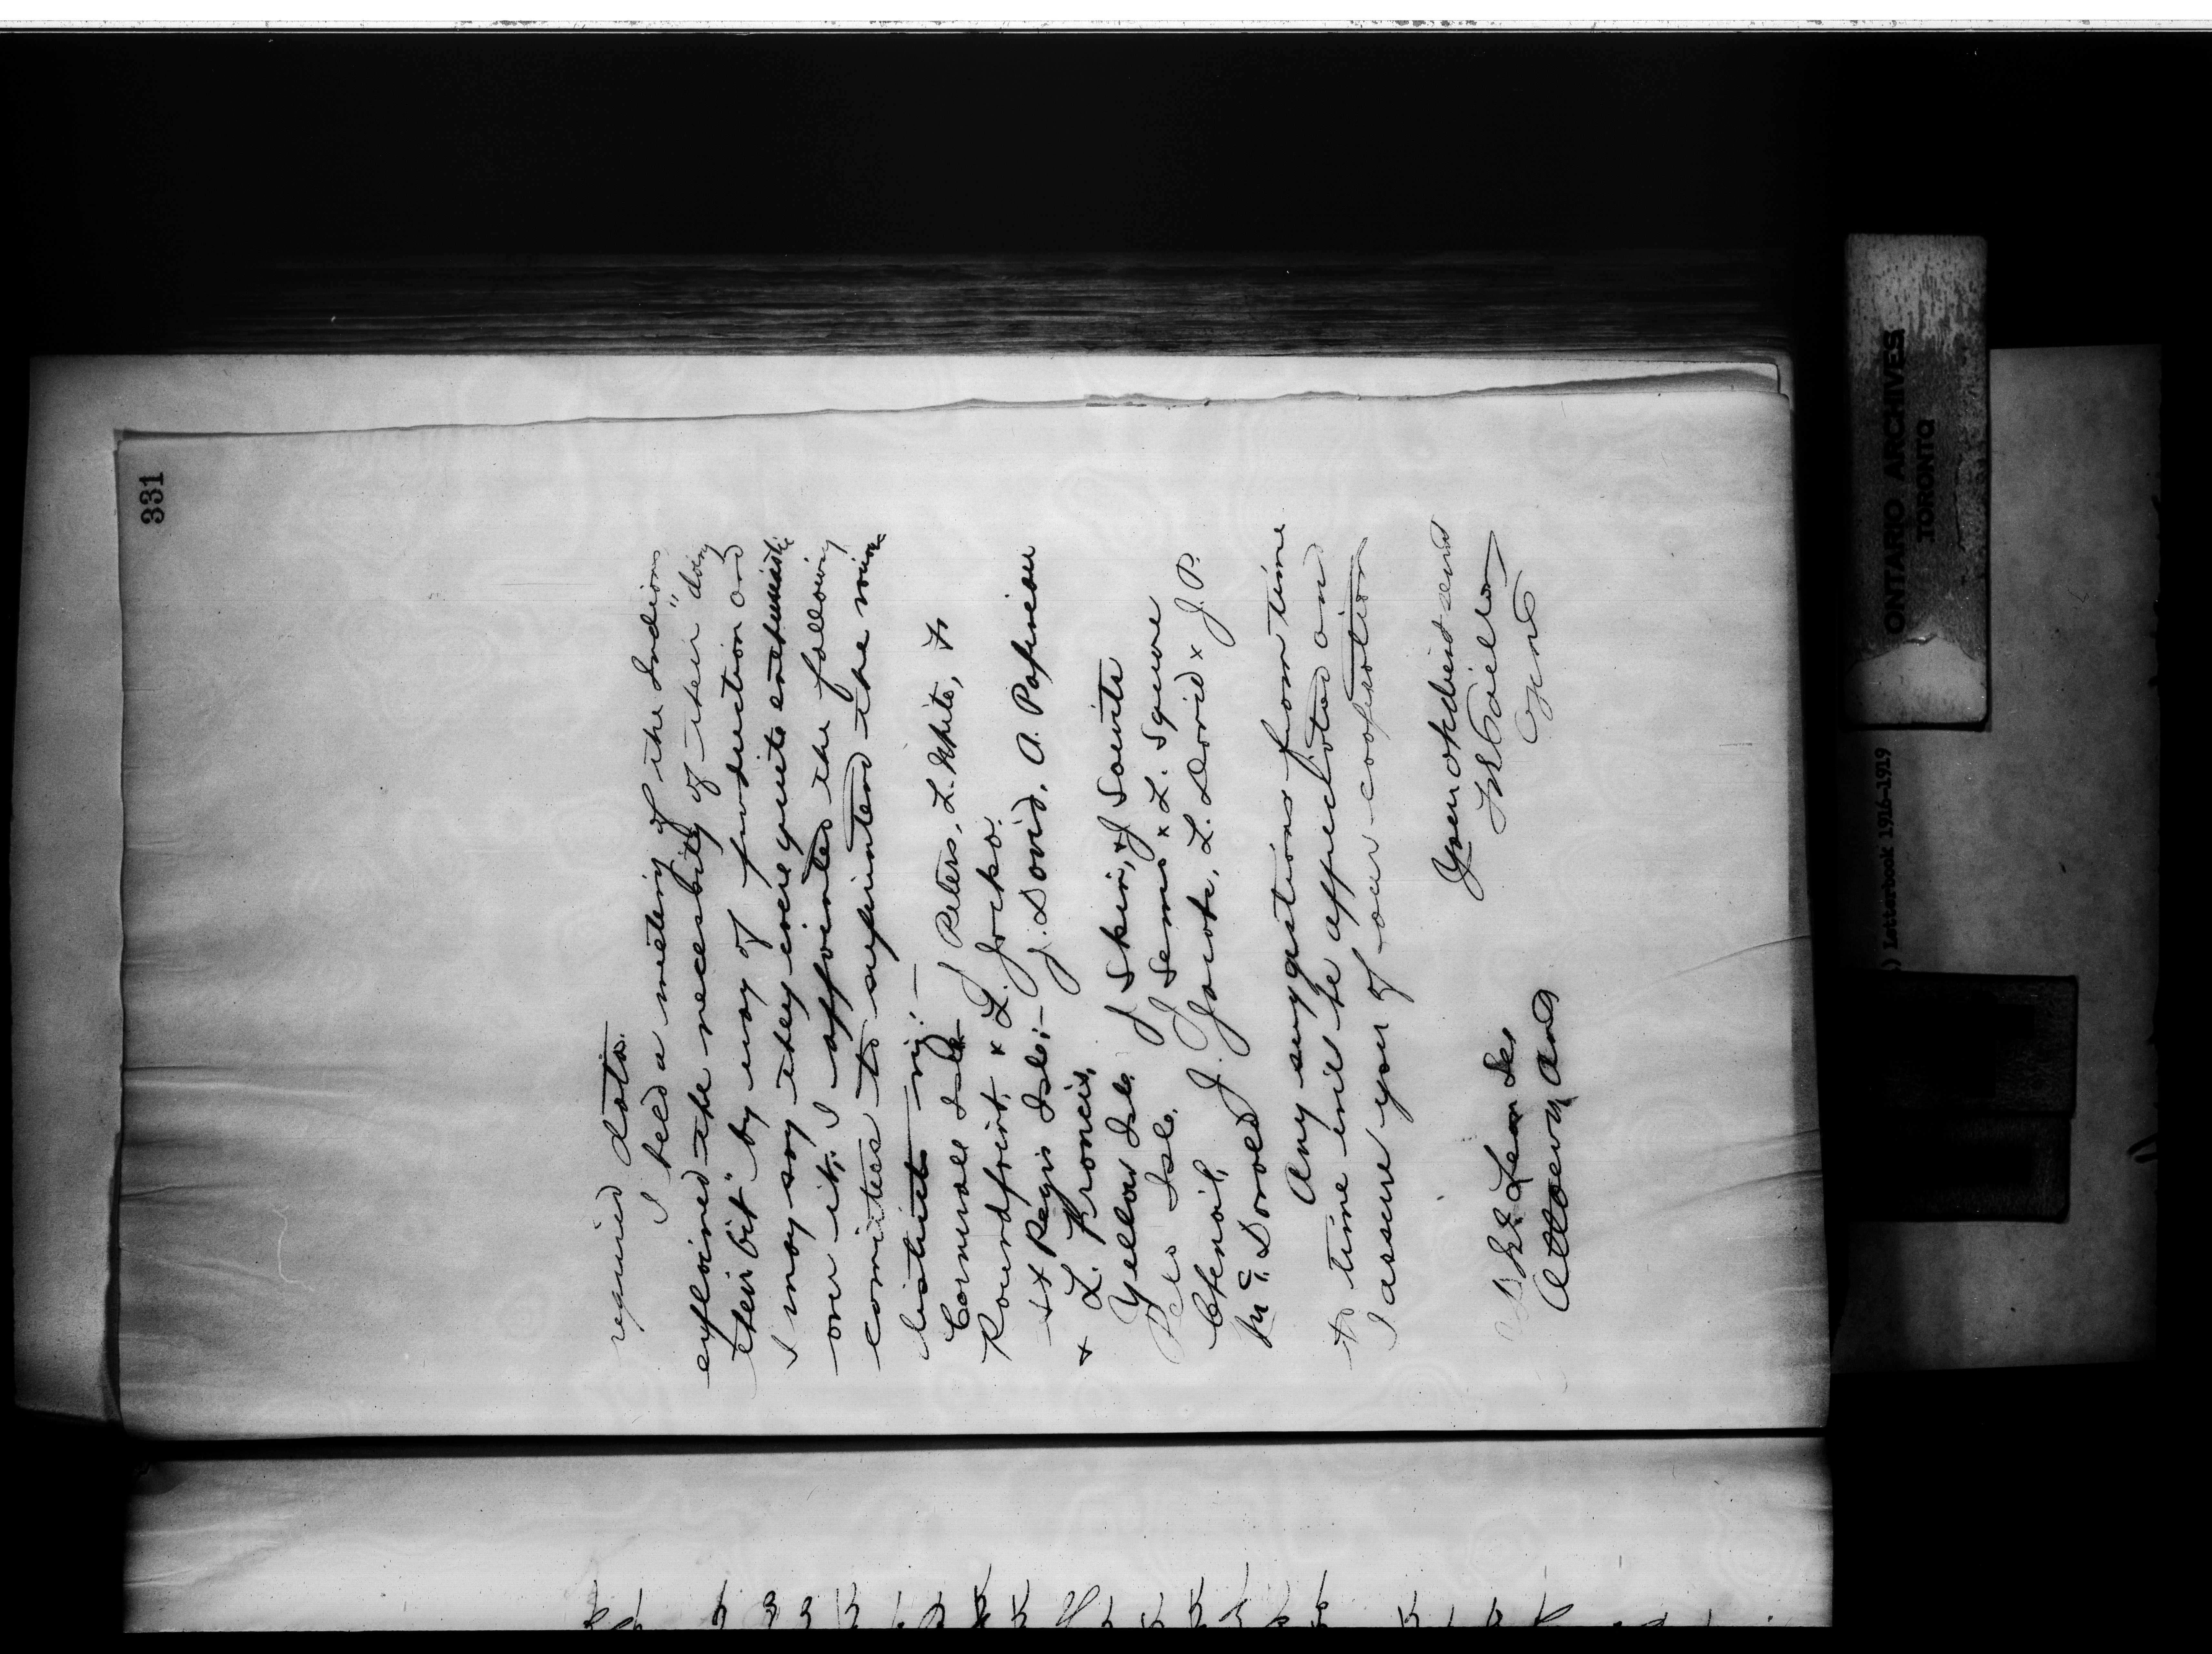 331
required data.
I held a meeting of the Indians
explained the necessity of their "doing
their bit" by way of production and
I may say they were quite enthusiastic
over it. I appointed the following
comittees to superintend the various
districts viz:—
Cornwall Isle J Peters, L. White, Js
Roundpoint, & L. Jocko.
St Regis Isle:— J. David, A. Papineau
& L. Francis,
Yellow Isle. J Skin, & J Sawite
Pete Isle. J Sems & L. Square
Chenail, J. Jacobs, L. David & J. P.
McDonald
Any suggestions from time
to time will be appreciated and
I assure you of our cooperation
Your obedient servt
Agent
Ottawa Ont
ONTARIO ARCHIVES
TORONTO
) Letterbook 1916-1919